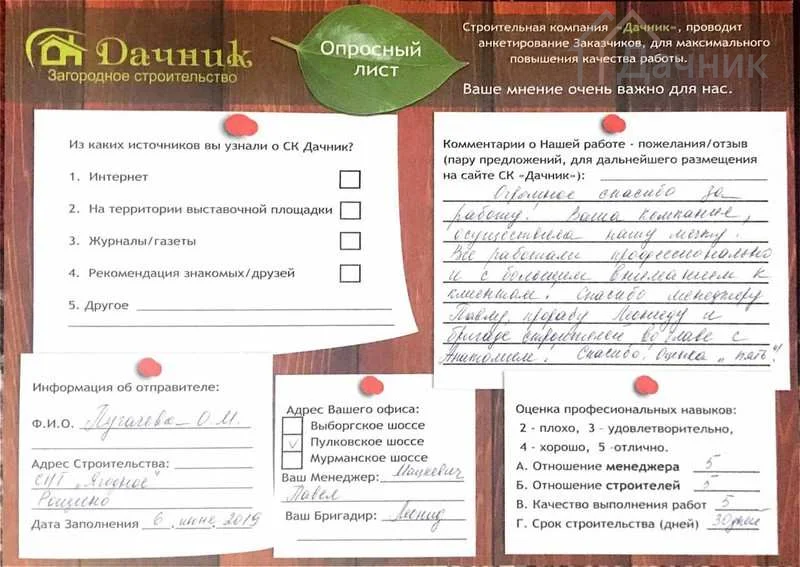 Дачник
Загородное строительство
Опросный
лист
Строительная компания «Дачник», проводит
анкетирование Заказчиков, для максимального
повышения качества работы.
Дачник
Ваше мнение очень важно для нас.
Из каких источников вы узнали о СК Дачник?
1. Интернет
2. На территории выставочной площадки
3. Журналы/газеты
4. Рекомендация знакомых/друзей
5. Другое
Комментарии о Нашей работе - пожелания/отзыв
(пару предложений, для дальнейшего размещения
на сайте СК «Дачник»):
Огромное спасибо за
работу. Ваша компания,
осуществила нашу мечту.
Все работали профессионально
и с большим вниманием к
клиентам. Спасибо менеджеру
Павлу, прорабу Леониду и
бригаде строителей во главе с
Анатолием! Спасибо! Оценка „пять"!
Информация об отправителе:
Ф.И.О. Пугачева О.М.
Адрес Строительства:
СНТ „Ягодное"
Рощино
Дата Заполнения 6 июня 2019
Адрес Вашего офиса:
Выборгское шоссе
Пулковское шоссе
Мурманское шоссе
Ваш Менеджер: Мацкевич
Павел
Ваш Бригадир: Леонид
Оценка професиональных навыков:
2 - плохо, 3 - удовлетворительно,
4 - хорошо, 5 -отлично.
А. Отношение менеджера 5
Б. Отношение строителей 5
В. Качество выполнения работ 5
Г. Срок строительства (дней) 30 дней